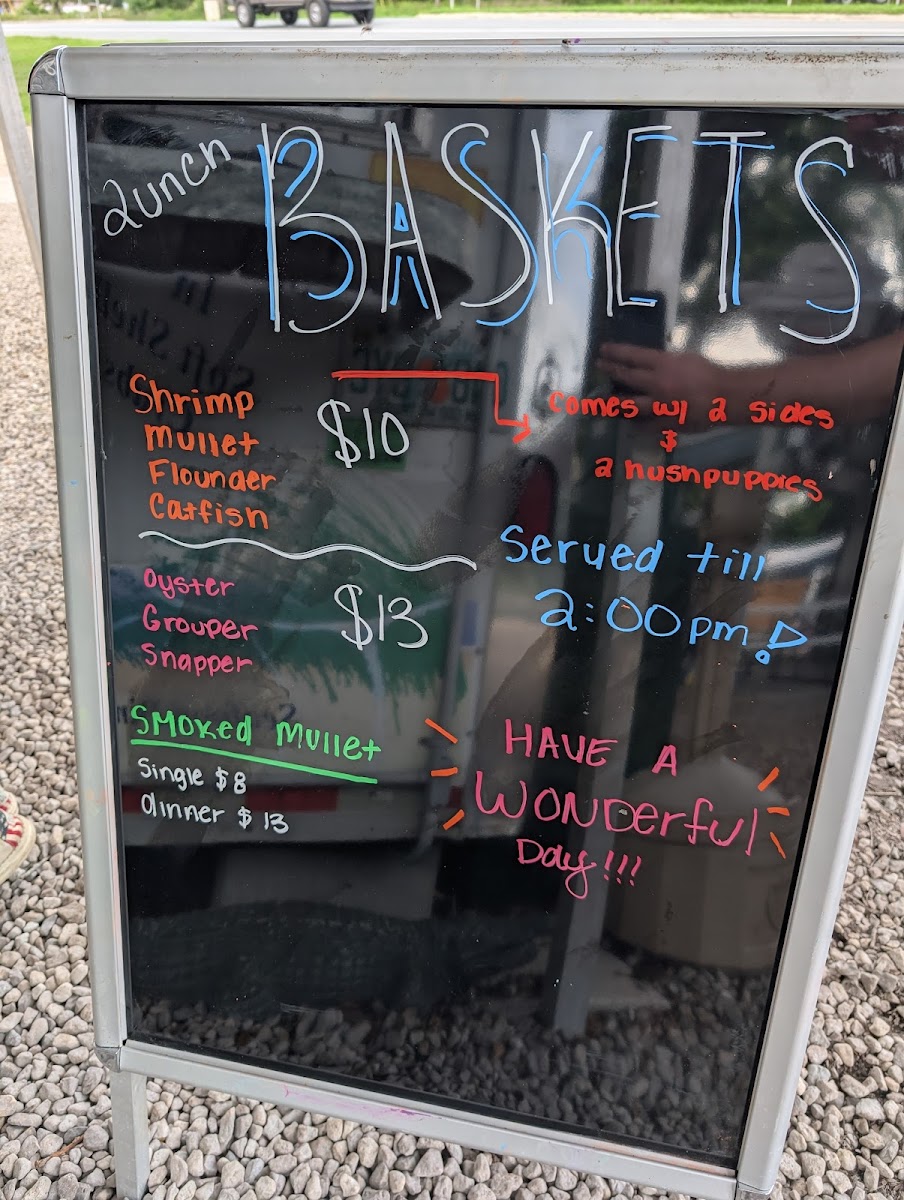 Lunch BASKETS
Shrimp
Mullet
Flounder
Catfish
$10
comes w/ 2 sides
&
2 hushpuppies
Oyster
Grouper
Snapper
$13
Served till
2:00pm!
Smoked Mullet
Single $8
dinner $13
HAVE A
WONDerful
Day!!!